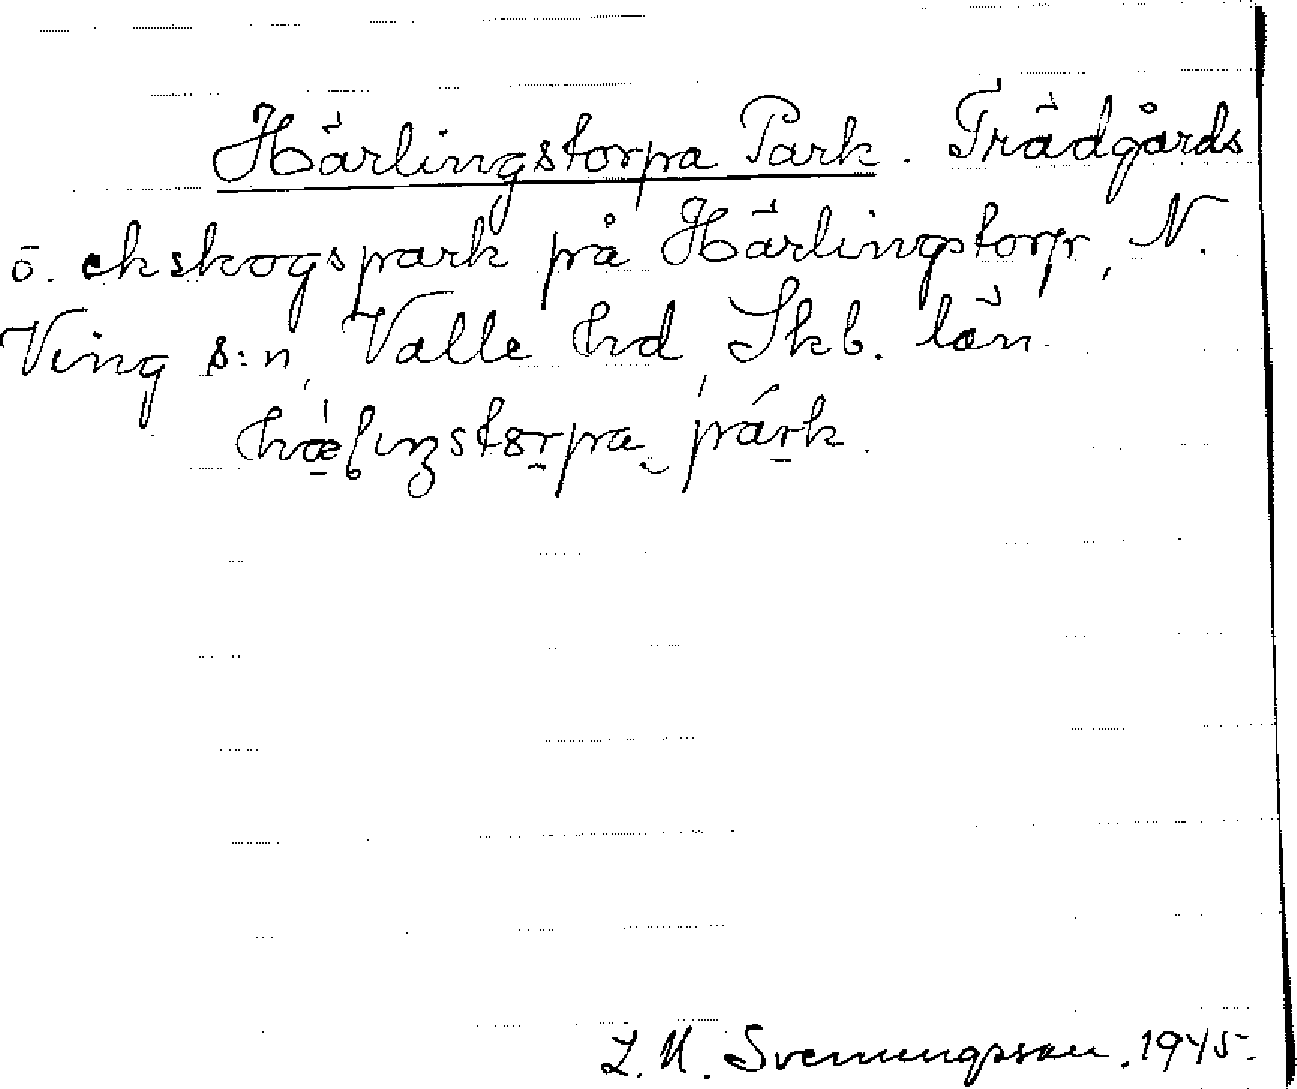 Härlingstorpa Park. Trädgårds
ö. ekskogspark på Härlingstorp, N.
Ving s:n, Valle hd Skb. län.
park.
L. M. Svenungsson. 1945.